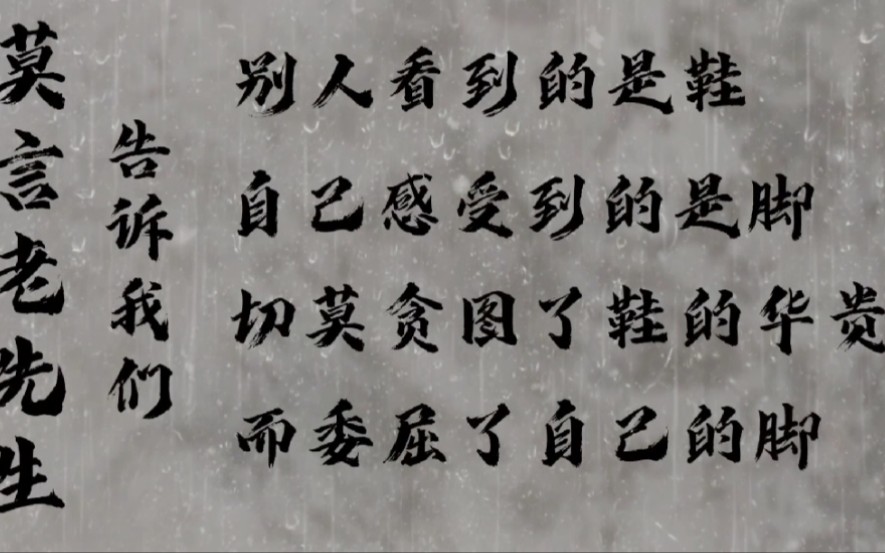 莫言老先生
告诉我们
别人看到的是鞋
自己感受到的是脚
切莫贪图了鞋的华贵
而委屈了自己的脚